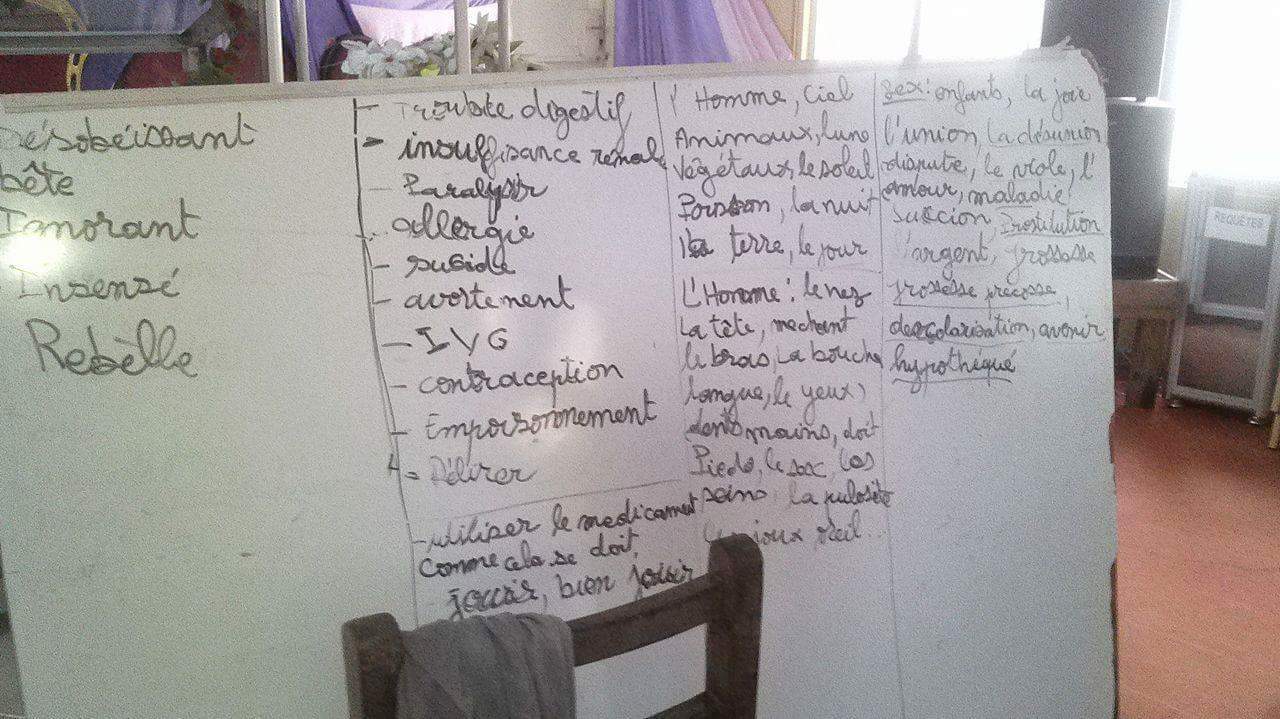 Désobéissant
bête
Ignorant
Insensé
Rebèlle
- Trouble digestif
- insuffisance renale
- Paralysir
- allergie
- suicide
- avortement
- IVG
- contraception
- Empoisonnement
= Délirer
- utiliser le medicament
comme cela se doit,
jouir, bien jouir
l'Homme, Ciel
Animaux, lune
Végétaux, le soleil
Poisson, la nuit
la terre, le jour
L'Homme: le nez
La tête, mechant
le bras, La bouche
langue, le yeux,
dents mains, doit
Pieds, le sex, les
seins, la pulosité
oeil...
Sex: enfants, la joie
l'union, la désunion
dispute, le viole, l'
amour, maladie
Succion, Prostitution
l'argent, grossesse
grossesse precosse,
descolarisation, avenir
hypothéqué
REQUÊTES